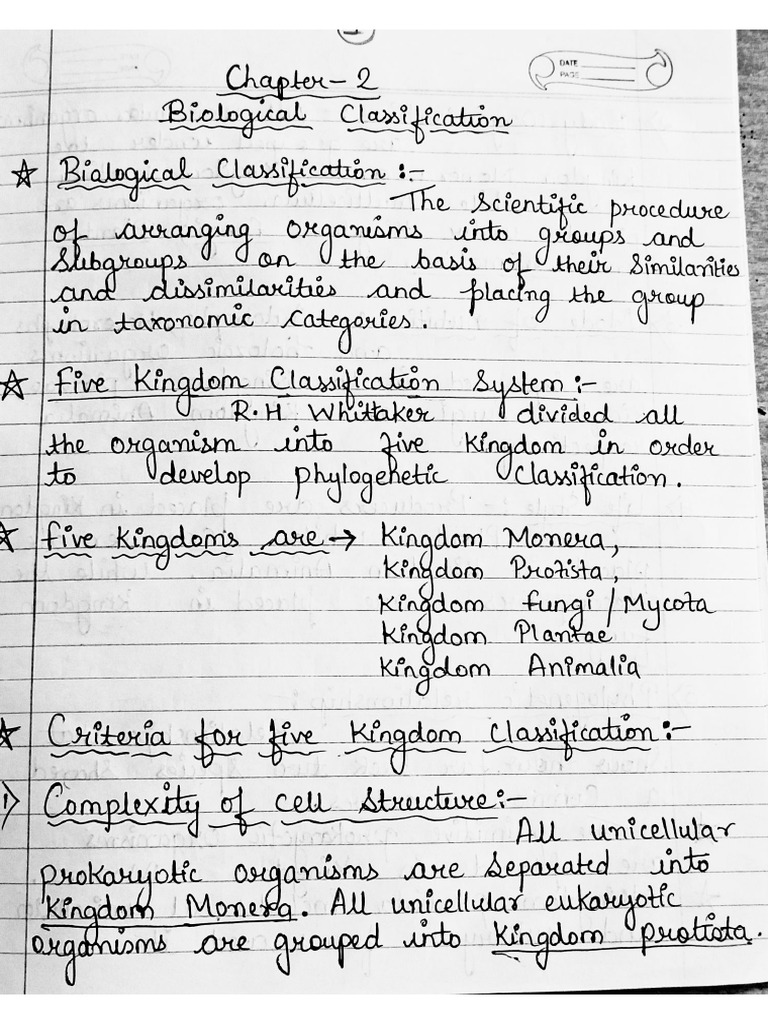 1
DATE
PAGE
Chapter-2
Biological Classification
☆ Bialogical Classification :-
The Scientific procedure
of arranging organisms into groups and
Subgroups on the basis of their Similarities
and dissimilarities and placing the group
in taxonomic categories.
☆ five Kingdom Classification System :-
R.H Whittaker divided all
the organism into five Kingdom in order
to develop phylogenetic Classification.
☆ five kingdoms are → Kingdom Monera,
Kingdom Protista,
Kingdom fungi / Mycota
Kingdom Plantae
Kingdom Animalia
☆ Criteria for five Kingdom Classification :-
1) Complexity of cell Structure :-
All unicellular
prokaryotic organisms are separated into
Kingdom Monera. All unicellular eukaryotic
organisms are grouped into Kingdom protista.